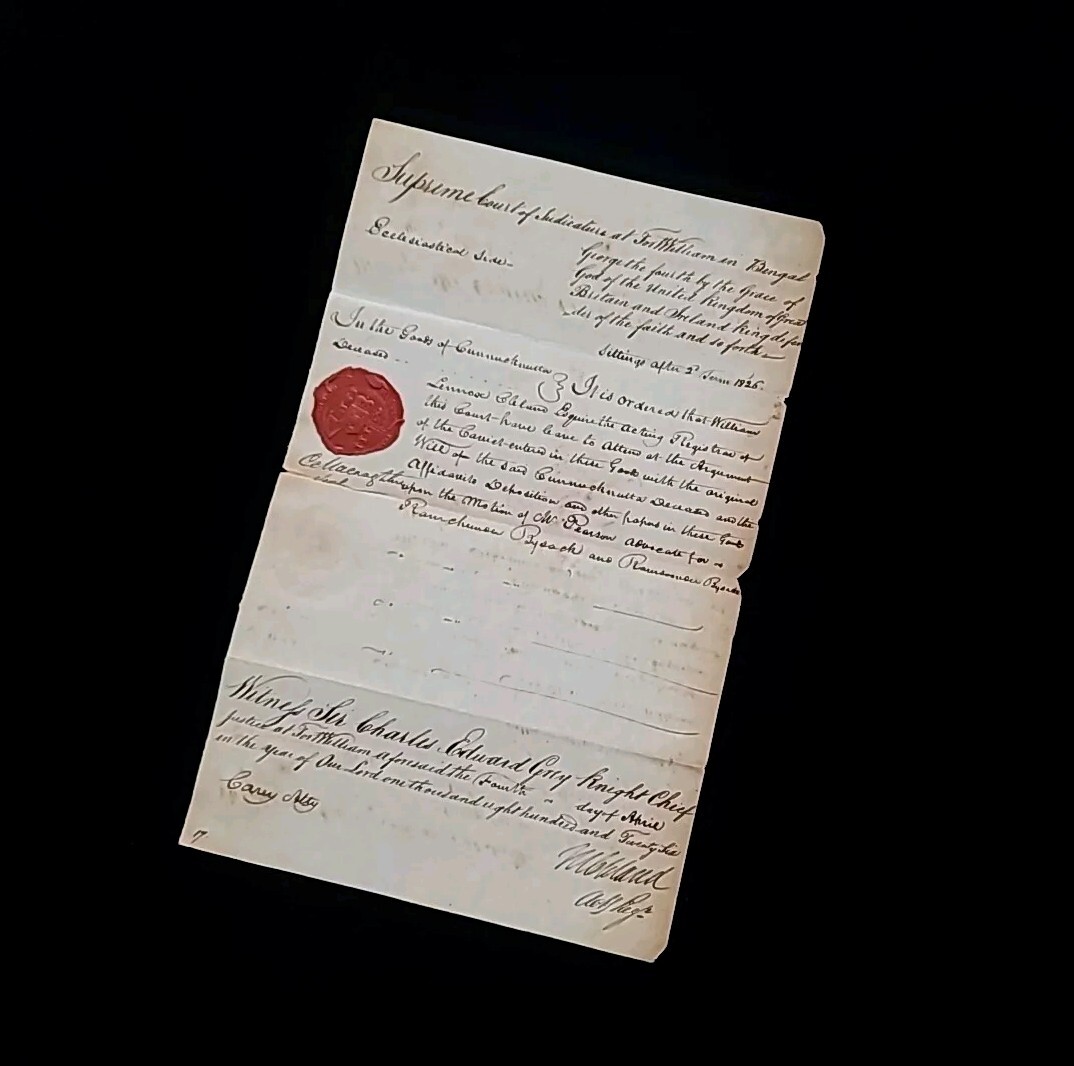 Supreme Court of Judicature at Fort William in Bengal
Ecclesiastical Side
George the fourth by the Grace of
God of the United Kingdom of Great
Britain and Ireland King defen
der of the faith and so forth
Sittings after 2d Term 1826.
In the Goods of Cunnucknutta
Deceased
It is ordered that William
Lennox Cleland Esquire the acting Registrar of
this Court have leave to Attend at the Argument
of the Caveat entered in these Goods with the original
Will of the said Cunnucknutta Deceased and the
Affidavits Deposition and other papers in these Goods
upon the Motion of Mr Pearson advocate for
Ramchunder Bysack and Bysack
Witness Sir Charles Edward Grey Knight Chief
Justice at Fort William aforesaid the Fourth day of April
in the year of Our Lord one thousand eight hundred and Twenty Six
Carey Atty
WCleland
Actg Regr